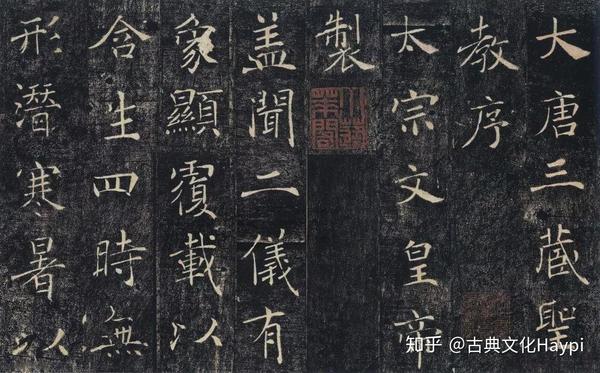 大唐三藏聖
教序
太宗文皇帝
製
盖聞二儀有
象顯覆載以
含生四時無
形潛寒暑以
知乎 @古典文化Haypi